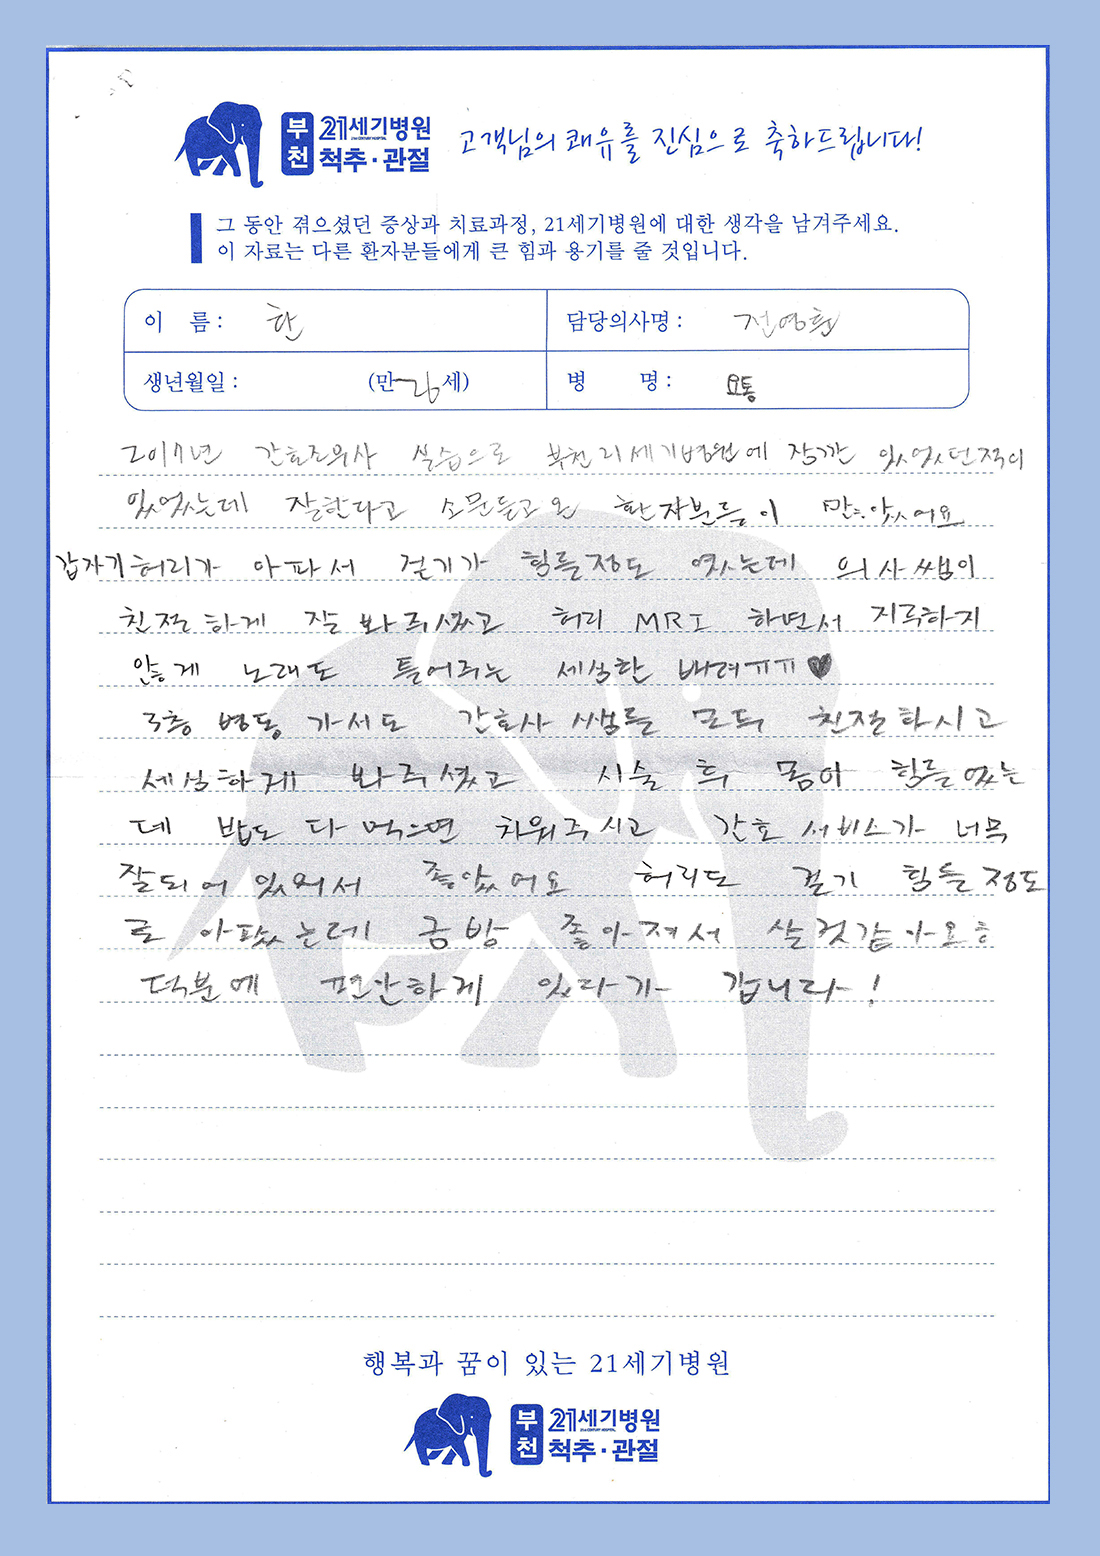 부천 21세기병원 척추·관절 고객님의 쾌유를 진심으로 축하드립니다!
그 동안 겪으셨던 증상과 치료과정, 21세기병원에 대한 생각을 남겨주세요.
이 자료는 다른 환자분들에게 큰 힘과 용기를 줄 것입니다.
이 름 : 한 담당의사명 : 전영훈
생년월일 : (만 26 세) 병 명 : 요통
2017년 간호조무사 실습으로 부천21세기병원에 잠깐 있었던적이
있었는데 잘한다고 소문듣고 온 환자분들이 많았어요
갑자기 허리가 아파서 걷기가 힘들정도 였는데 의사쌤이
친절하게 잘 봐주셨고 허리 MRI 하면서 지루하지
않게 노래도 틀어주는 세심한 배려ㅠㅠ♥
3층 병동 가서도 간호사 쌤들 모두 친절하시고
세심하게 봐주셨고 시술 후 몸이 힘들었는
데 밥도 다 먹으면 치워주시고 간호 서비스가 너무
잘되어 있어서 좋았어요 허리도 걷기 힘들정도
로 아팠는데 금방 좋아져서 살것같아요ㅎ
덕분에 편안하게 있다가 갑니다!
행복과 꿈이 있는 21세기병원
부천 21세기병원 척추·관절